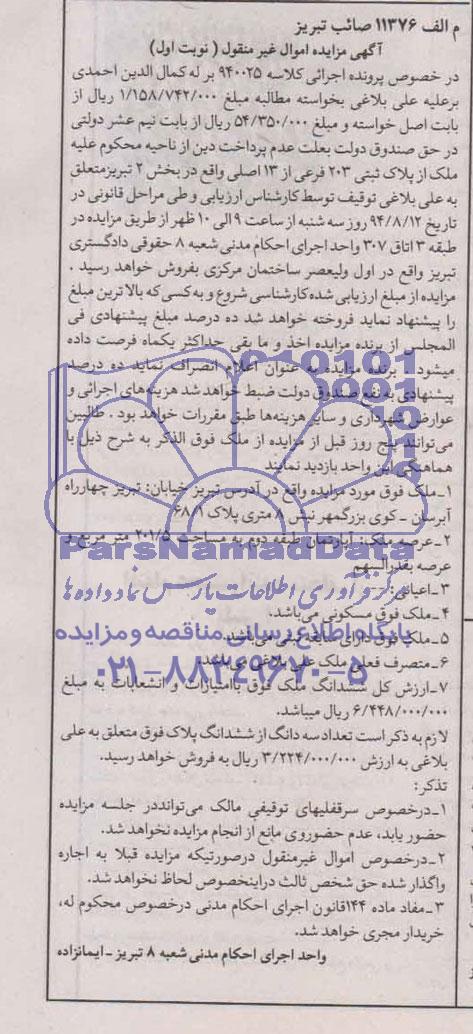 م الف ۱۱۳۷۶ صائب تبریز
آگهی مزایده اموال غیر منقول ( نوبت اول)
در خصوص پرونده اجرائی کلاسه ۹۴۰۰۲۵ بر له کمال الدین احمدی
برعلیه علی بلاغی بخواسته مطالبه مبلغ ۱/۱۵۸/۷۴۲/۰۰۰ ریال از
بابت اصل خواسته و مبلغ ۵۴/۳۵۰/۰۰۰ ریال از بابت نیم عشر دولتی
در حق صندوق دولت بعلت عدم پرداخت دین از ناحیه محکوم علیه
ملک از پلاک ثبتی ۲۰۳ فرعی از ۱۳ اصلی واقع در بخش ۲ تبریزمتعلق
به علی بلاغی توقیف توسط کارشناس ارزیابی و طی مراحل قانونی در
تاریخ ۹۴/۸/۱۲ روز سه شنبه از ساعت ۹ الی ۱۰ ظهر از طریق مزایده در
طبقه ۳ اتاق ۳۰۷ واحد اجرای احکام مدنی شعبه ۸ حقوقی دادگستری
تبریز واقع در اول ولیعصر ساختمان مرکزی بفروش خواهد رسید .
مزایده از مبلغ ارزیابی شده کارشناسی شروع و به کسی که بالاترین مبلغ
را پیشنهاد نماید فروخته خواهد شد ده درصد مبلغ پیشنهادی فی
المجلس از برنده مزایده اخذ و ما بقی حداکثر یکماه فرصت داده
میشود . برنده مزایده به عنوان اعلام انصراف نماید ده درصد
پیشنهادی به نفع صندوق دولت ضبط خواهد شد هزینه‌های اجرائی و
عوارض شهرداری و سایر هزینه‌ها طبق مقررات خواهد بود . طالبین
می‌توانند پنج روز قبل از مزایده از ملک فوق الذکر به شرح ذیل با
هماهنگی این واحد بازدید نمایند
۱ـ ملک فوق مورد مزایده واقع در آدرس تبریز خیابان: تبریز چهارراه
آبرسان ـ کوی بزرگمهر نبش ۸ متری پلاک ۶۸/۱
۲ـ عرصه ملک: آپارتمان طبقه دوم به مساحت ۲۰۱/۵ متر مربع و
عرصه بقدرالسهم
۳ـ اعیانی: ـ
۴ـ ملک فوق مسکونی می‌باشد.
۵ـ ملک فوق دارای سابقه ثبتی می‌باشد.
۶ـ متصرف فعلی ملک علی بلاغی می‌باشد.
۷ـ ارزش کل ششدانگ ملک فوق باامتیازات و انشعابات به مبلغ
۶/۴۴۸/۰۰۰/۰۰۰ ریال میباشد.
لازم به ذکر است تعداد سه دانگ از ششدانگ پلاک فوق متعلق به علی
بلاغی به ارزش ۳/۲۲۴/۰۰۰/۰۰۰ ریال به فروش خواهد رسید.
تذکر:
۱ـ درخصوص سرقفلیهای توقیفی مالک می‌توانددر جلسه مزایده
حضور یابد، عدم حضوروی مانع از انجام مزایده نخواهد شد.
۲ـ درخصوص اموال غیرمنقول درصورتیکه مزایده قبلا به اجاره
واگذار شده حق شخص ثالث دراینخصوص لحاظ نخواهد شد.
۳ـ مفاد ماده ۱۴۴قانون اجرای احکام مدنی درخصوص محکوم له،
خریدار مجری خواهد شد.
واحد اجرای احکام مدنی شعبه ۸ تبریز ـ ایمانزاده
ParsNamadData
مرکز فرآوری اطلاعات پارس نماد داده ها
پایگاه اطلاع رسانی مناقصه و مزایده
۰۲۱-۸۸۳۴۹۶۷۰-۵